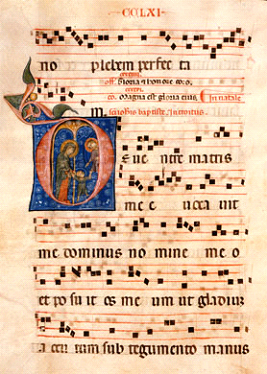 CCLXI
no plebem perfec ti
Gloria & honore co ro.
co. Magna est gloria eius. In natale
baptiste, introitus
De uen tre matris
me e uoca uit
me dominus no mine me o
et po su it os me um ut gladium
a cu tum sub tegumento manus